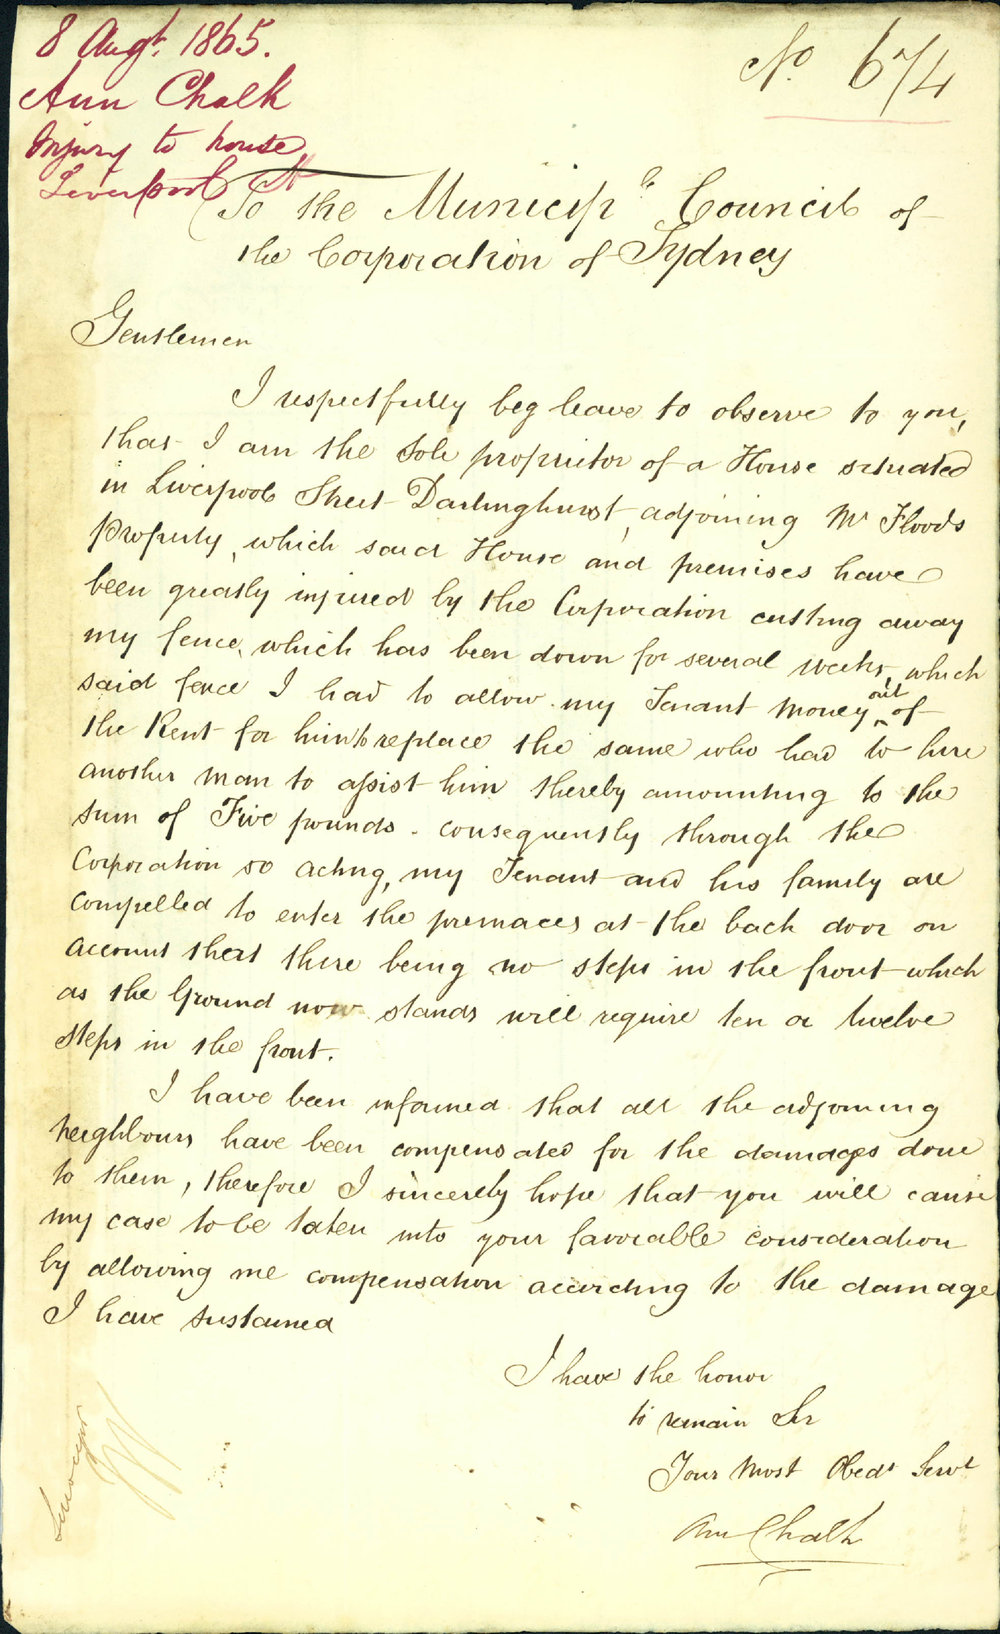 8 Augt. 1865.
Ann Chalk
Injury to house
Liverpool St
No. 674
To the Municipl. Council of
the Corporation of Sydney
Gentlemen
I respectfully beg leave to observe to you,
that I am the Sole proprietor of a House situated
in Liverpool Street Darlinghurst, adjoining Mr Floods
Property, which said House and premises have
been greatly injured by the Corporation cutting away
my fence, which has been down for several weeks, which
said fence I had to allow my Tenant Money out of
the Rent for him to replace the same who had to hire
another man to assist him thereby amounting to the
sum of Five pounds. consequently through the
Corporation so acting, my Tenant and his family are
compelled to enter the premaces at the back door on
account there being no steps in the front which
as the Ground now stands will require ten or twelve
steps in the front.
I have been informed that all the adjoining
neighbours have been compensated for the damages done
to them, therefore I sincerely hope that you will cause
my case to be taken into your favorable consideration
by allowing me compensation according to the damage
I have sustained
I have the honor
to remain Sir
Your Most Obedt Servt
Ann Chalk